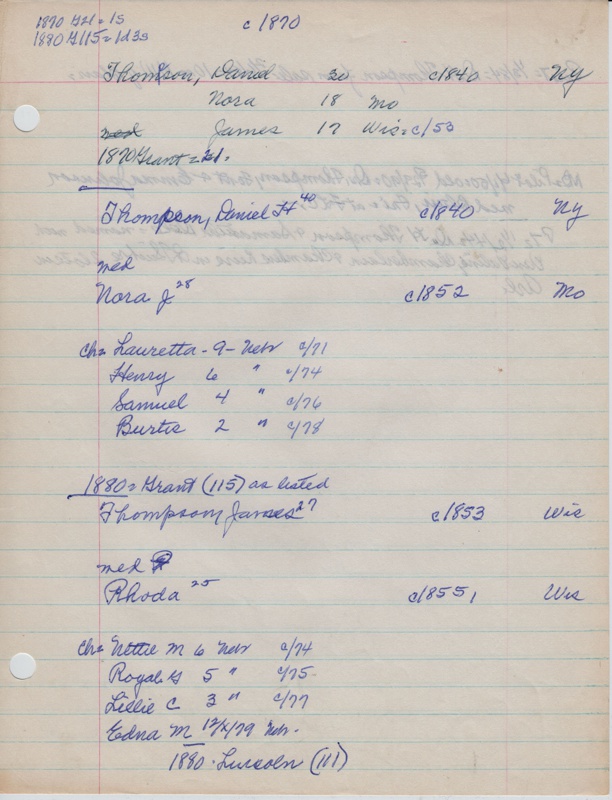 1870 G21 = 1s
1880 G115 = 1d3s
c1870
Thompson, Daniel 30 c1840 NY
Nora 18 Mo
James 17 Wis = c/53
1870 Grant = 21.
Thompson, Daniel H 40 c1840 NY
med
Nora J 28 c1852 Mo
Ch = Lauretta - 9 - Nebr c/71
Henry 6 " c/74
Samuel 4 " c/76
Burtis 2 " c/78
1880 = Grant (115) as listed
Thompson James 27 c1853 Wis
med
Rhoda 25 c1855 Wis
Ch = Nettie M 6 Nebr c/74
Royal G 5 " c/75
Lillie C 3 " c/77
Edna M 12/X/79 Nebr.
1880 - Lincoln (111)